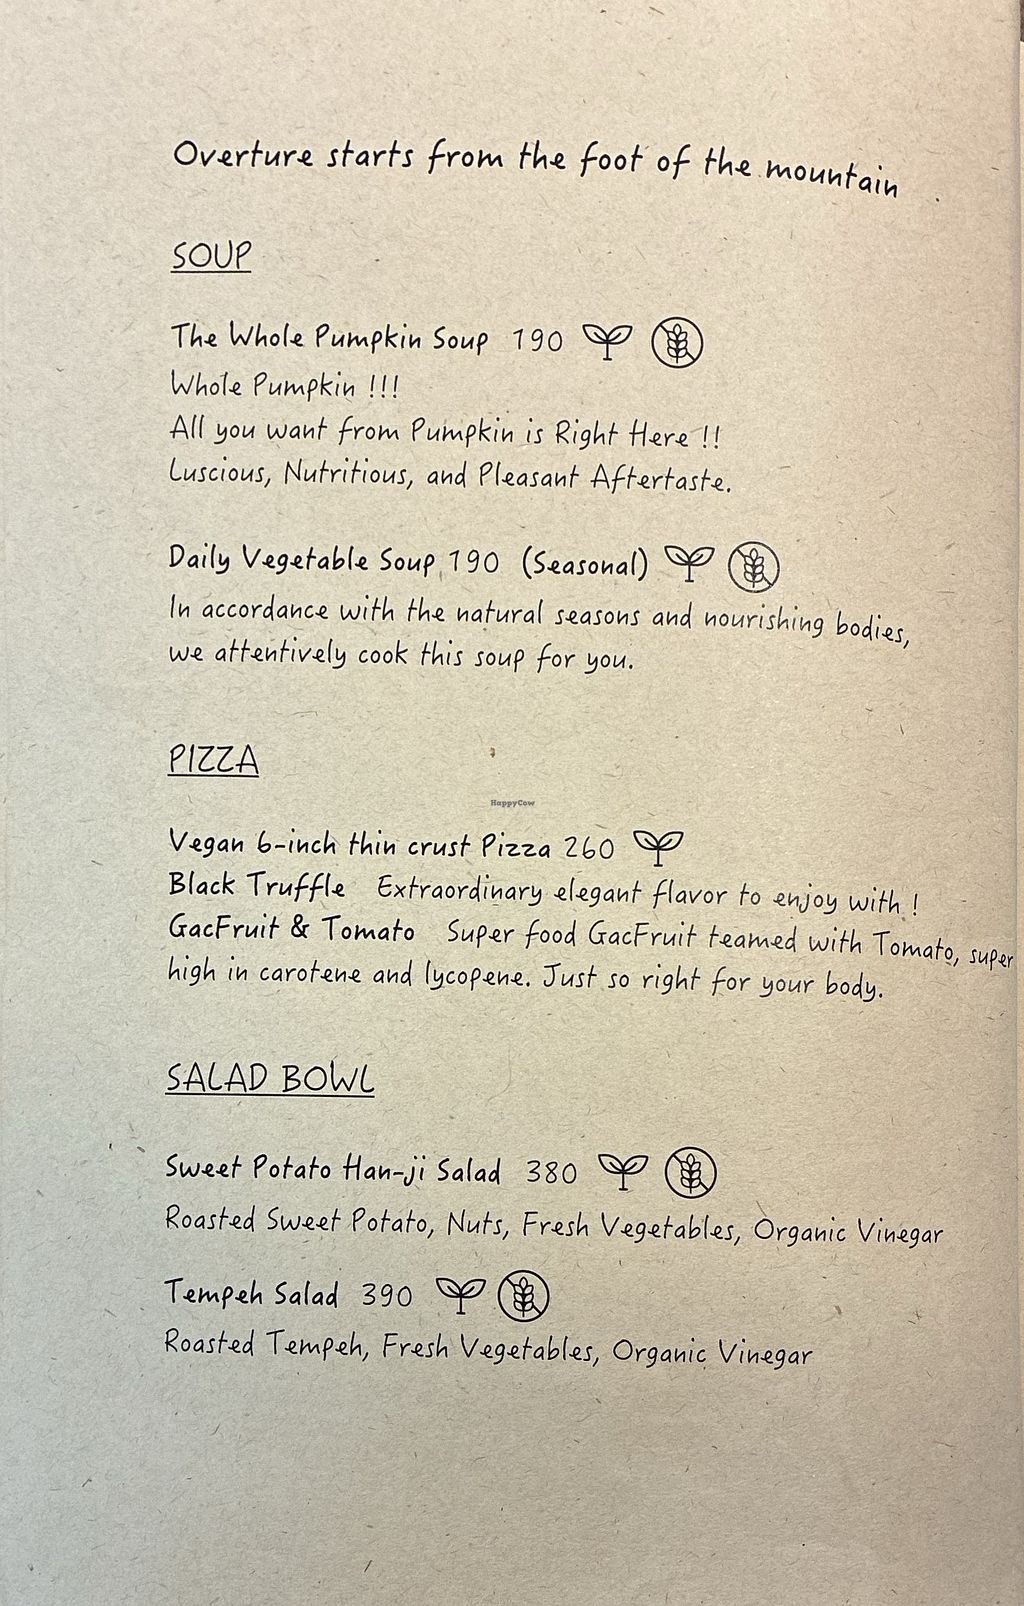 Overture starts from the foot of the mountain
SOUP
The Whole Pumpkin Soup 190
Whole Pumpkin !!!
All you want from Pumpkin is Right Here !!
Luscious, Nutritious, and Pleasant Aftertaste.
Daily Vegetable Soup 190 (Seasonal)
In accordance with the natural seasons and nourishing bodies,
we attentively cook this soup for you.
PIZZA
HappyCow
Vegan 6-inch thin crust Pizza 260
Black Truffle Extraordinary elegant flavor to enjoy with !
GacFruit & Tomato Super food GacFruit teamed with Tomato, super
high in carotene and lycopene. Just so right for your body.
SALAD BOWL
Sweet Potato Han-ji Salad 380
Roasted Sweet Potato, Nuts, Fresh Vegetables, Organic Vinegar
Tempeh Salad 390
Roasted Tempeh, Fresh Vegetables, Organic Vinegar